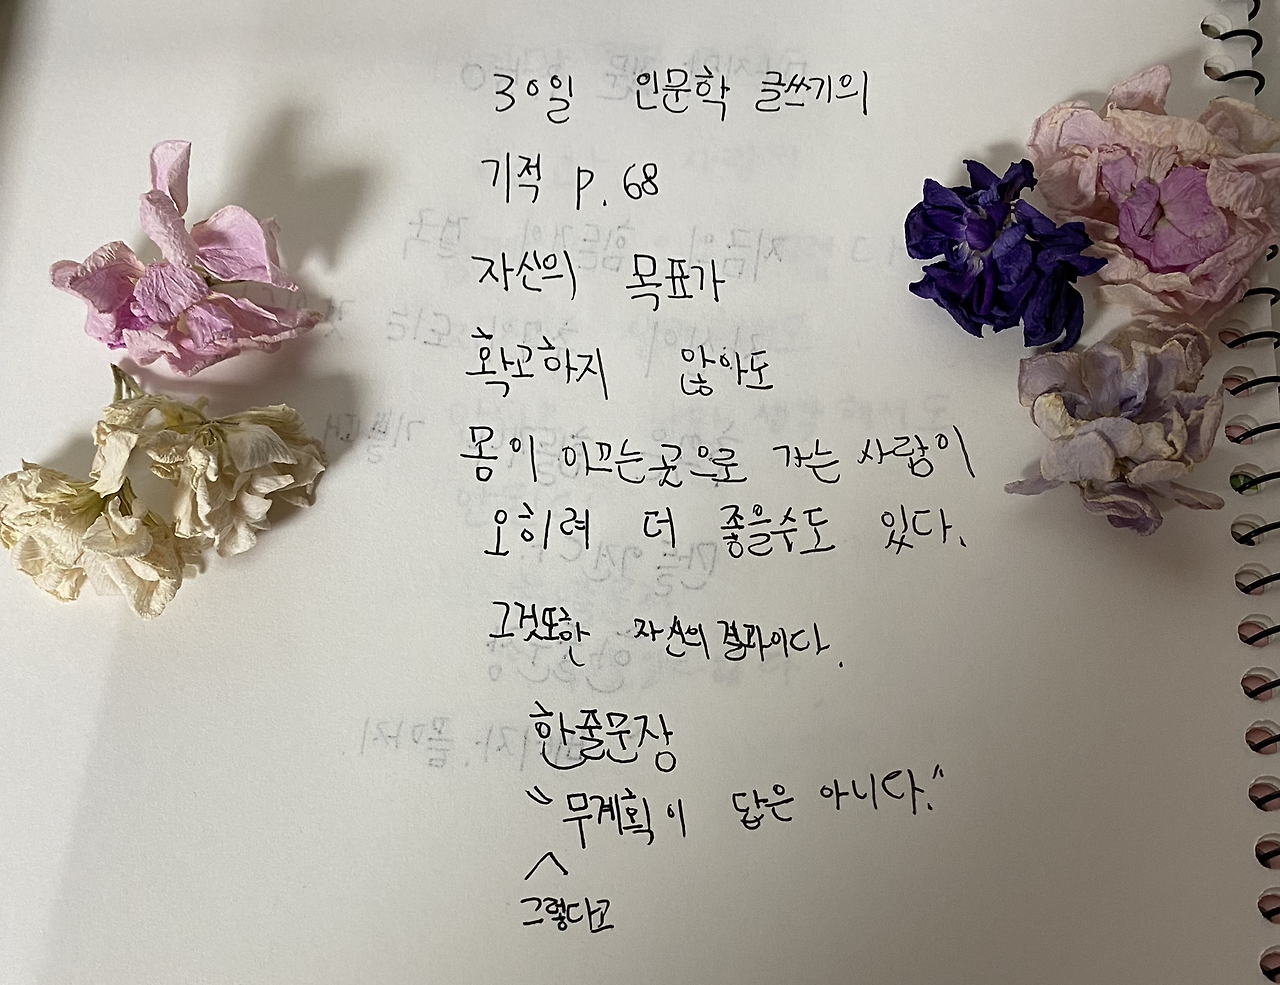 30일 인문학 글쓰기의
기적 p.68
자신의 목표가
확고하지 않아도
몸이 이끄는곳으로 가는 사람이
오히려 더 좋을수도 있다.
그것또한 자신의 결과이다.
한줄문장
"무계획이 답은 아니다."
^
그렇다고